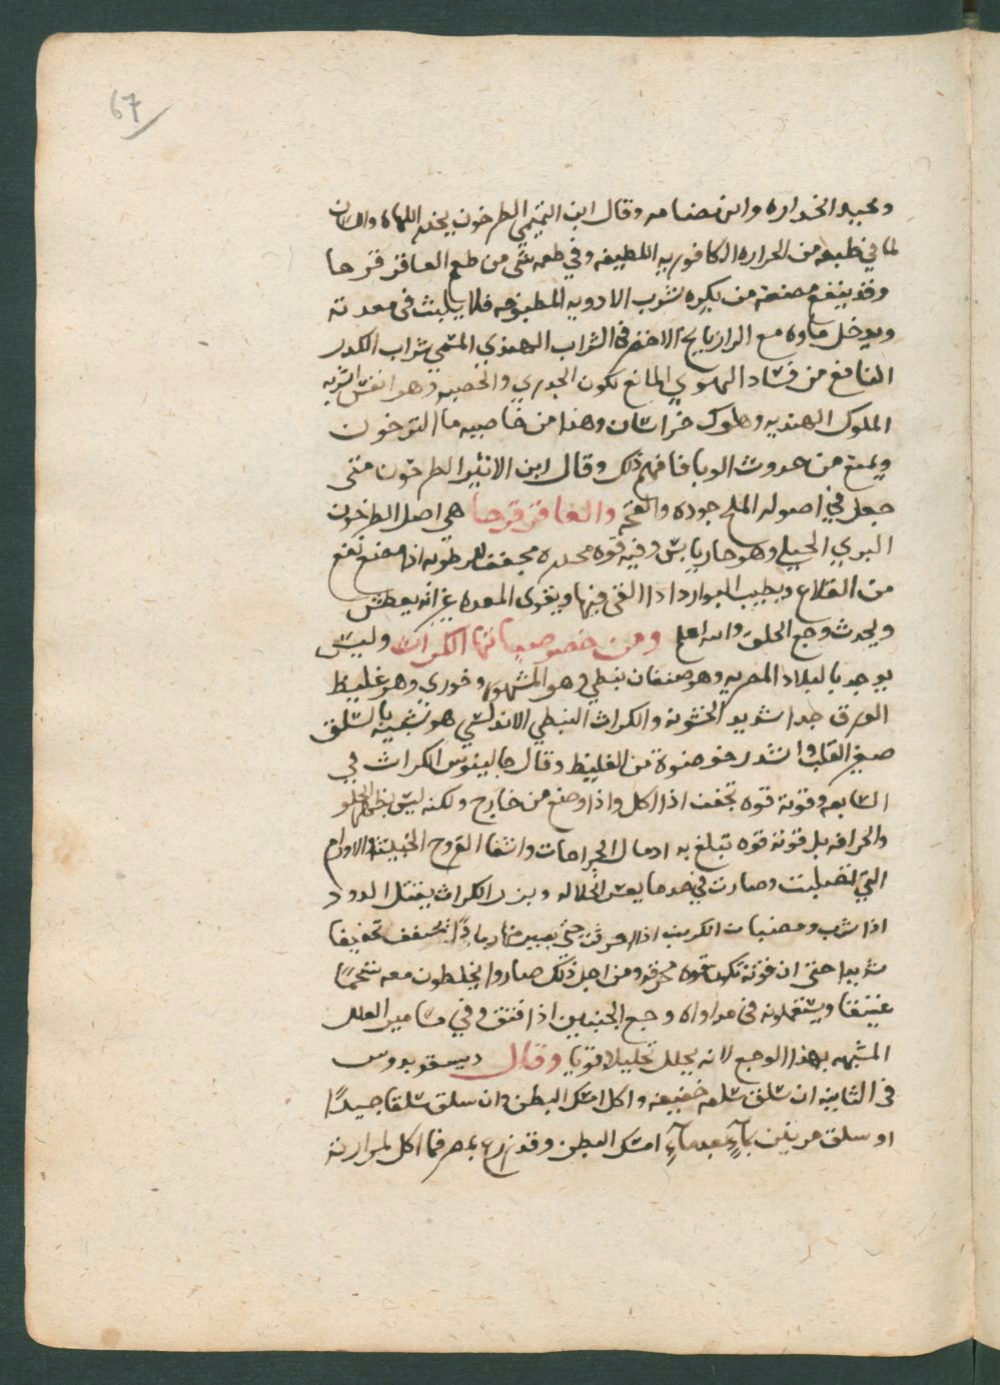 67
وقال ابن التميمي الطرخون يخدر اللهاه واللسان
لما في طبعه من الحراره الكافوريه اللطيفه وفي طعمه شي من طعم العاقر قرحا
وقد ينفع مضغه من يكره شرب الادويه المطبوخه فلا يلبث في معدته
ويدخل ماوه مع الرازيانج الاخضر في الشراب الهندي المسمي شراب الكدر
النافع من فساد الهوي المانع تكون الجدري والحصبه وهو انفس اشربه
الملوك الهنديه وملوك خراسان وهذا من خاصيه ما الترخون
ويمنع من حدوث الوبا فافهم ذلك وقال ابن الاثير الطرخون متي
جعل في اصوله الملح جوده والعاقر قرحا هي اصل الطرخون
البري الجبلي وهو حار يابس وفيه قوه محدره مجففه للرطوبه اذا مضغ نفع
من القلاع ويطيب البوارد اذا القي فيها ويقوي المعده غير انه يعطش
ويحدث وجع الحلق والله اعلم ومن خصوصياتها الكراث وليس
يوجد بالبلاد المصريه وهو صنفان نبطي وهو المشهور وخوري وهو غليظ
الورق جدا شديد الخشونه والكراث النبطي الاندلسي هو شبيه بالسلق
صغير القلب وقال جالينوس الكراث في
السابعه وقوته قوه تجفف اذا اكل واذا وضع من خارج ولكنه ليس
والحرافه بل قوته قوه تبلغ به ادمال الجراحات واشفا القروح الخبيثه والاورام
التي تصلبت وصارت في حد ما يعسر انحلاله وبزر الكرنب يقتل الدود
اذا شرب وقضبان الكرنب اذا احرقت حتي يصير منها رمادًا تجفف تجفيفا
شديدا حتي ان قوته تكون قوه محرقه ومن اجل ذلك صاروا يخلطون معه شحمًا
عتيقا ويستعملونه في مداواه وجع الجنبين اذا عتق وفي ساير العلل
المشبهه بهذا الوجع لانه يحلل تحليلا قويا وقال ديسقوريدوس
في الثانيه ان سلق سلقه خفيفه واكل اسهل البطن وان سلق سلقا جيدًا
او سلق مرتين بماءٍ بعد ماءٍ امسك البطن وقد زرع بمصر فما اكل لمرارته